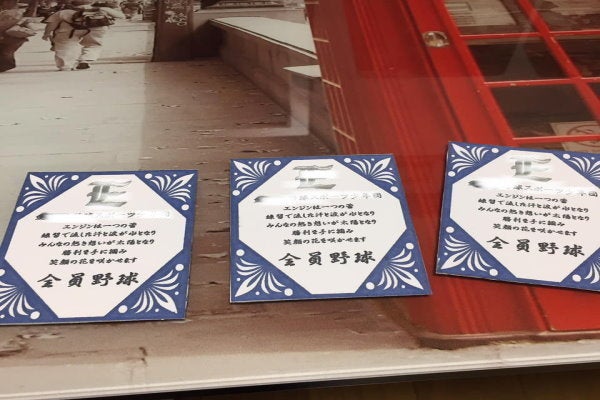 E
スポーツ
エンジンは一つの蕾
練習で流した汗と涙が水となり
みんなの熱き想いが太陽となり
勝利を手に掴み
笑顔の花を咲かせます
全員野球
E
球スポーツ少年団
エンジンは一つの蕾
練習で流した汗と涙が水となり
みんなの熱き想いが太陽となり
勝利を手に掴み
笑顔の花を咲かせます
全員野球
E
球スポーツ少年団
エンジンは一つの蕾
練習で流した汗と涙が水となり
みんなの熱き想いが太陽となり
勝利を手に掴み
笑顔の花を咲かせます
全員野球